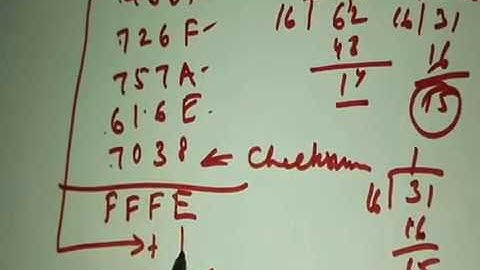 726F
757A
616E
7038 ← Checksum
FFFE
+ 1
16 62
48
14
16 31
16
15
1
16 31
16
15